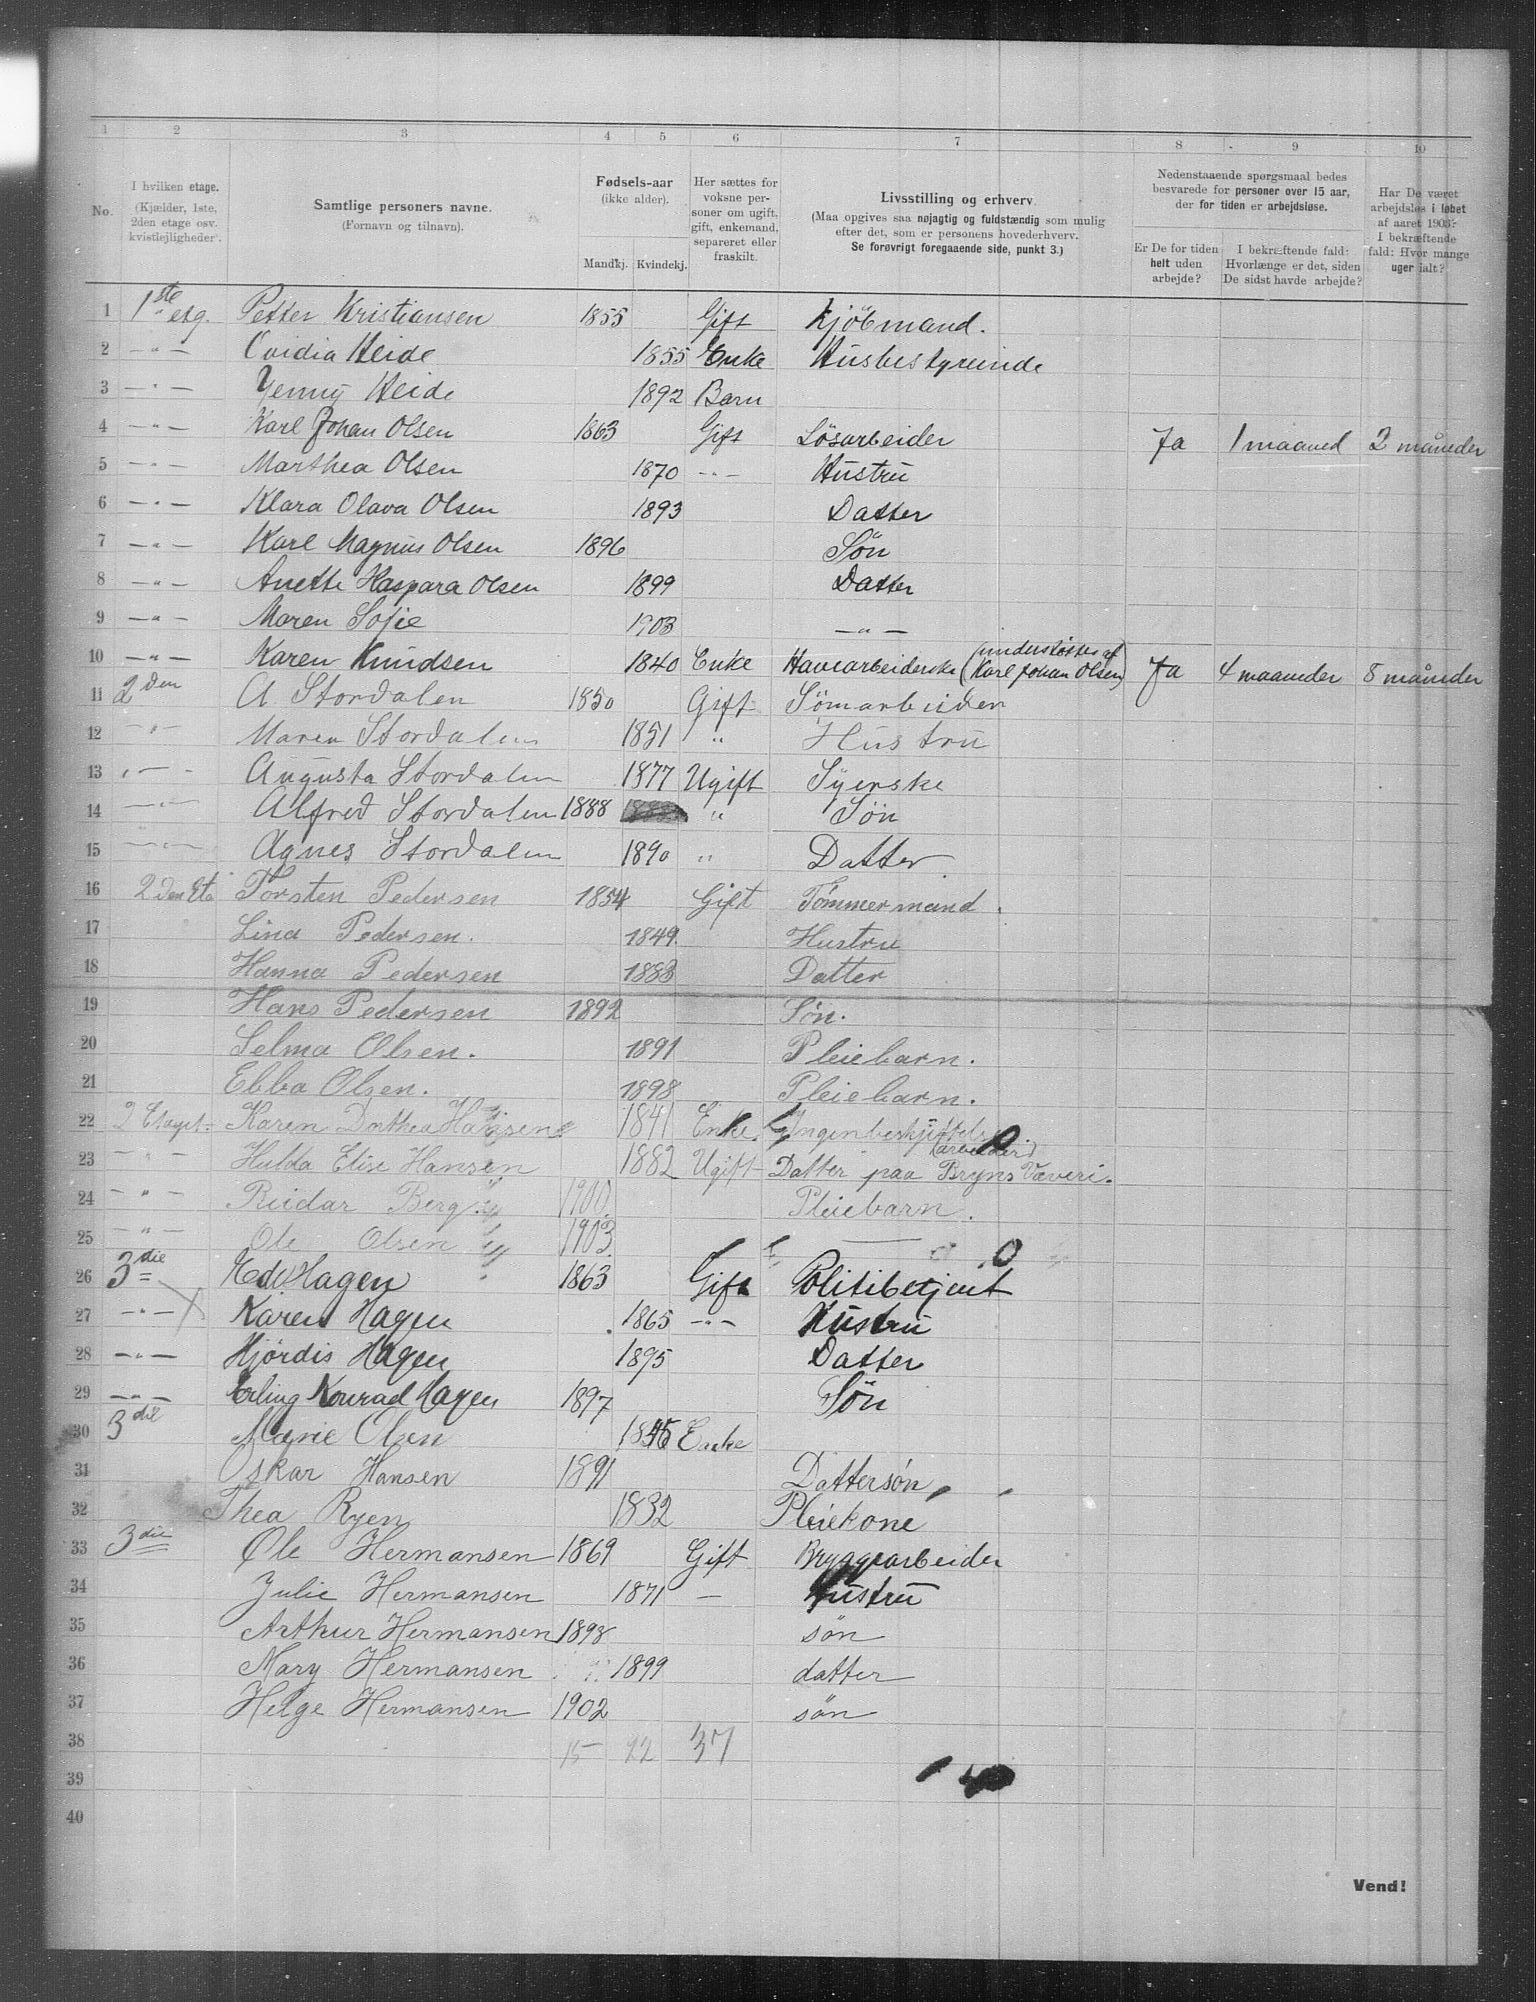 1 2 3 4 5 6 7 8 9 10
No. I hvilken etage. (Kjælder, 1ste, 2den etage osv. kvistleiligheder). Samtlige personers navne. (Fornavn og tilnavn). Fødsels-aar (ikke alder). Mandkj. Kvindekj. Her sættes for voksne personer om ugift, gift, enkemand, separeret eller fraskilt. Livsstilling og erhverv. (Maa opgives saa nøjagtig og fuldstændig som mulig efter det, som er personens hovederhverv. Se forøvrigt foregaaende side, punkt 3.) Nedenstaaende spørgsmaal bedes besvarede for personer over 15 aar, der for tiden er arbejdsløse. Er De for tiden helt uden arbejde? I bekræftende fald: Hvorlænge er det, siden De sidst havde arbejde? Har De været arbejdsløs i løbet af aaret 1903? I bekræftende fald: Hvor mange uger ialt?
1 1ste etg. Petter Kristiansen 1855 Gift Kjöbmand.
2 —"— Ovidia Heide 1855 Enke Husbestyreinde
3 —"— Jenny Heide 1892 Barn
4 —"— Karl Johan Olsen 1863 Gift Lösarbeider Ja 1 maaned 2 måneder
5 —"— Marthea Olsen 1870 —"— Hustru
6 —"— Klara Olava Olsen 1893 Datter
7 —"— Karl Magnus Olsen 1896 Sön
8 —"— Anette Kaspara Olsen 1899 Datter
9 —"— Maren Sofie 1903 —"—
10 —"— Karen Knudsen 1840 Enke Havearbeiderske (understöttes af Karl Johan Olsen) Ja 4 maaneder 8 måneder
11 2den A Stordalen 1850 Gift Sömarbeider
12 " Maren Stordalen 1851 " Hustru
13 —"— Augusta Stordalen 1877 Ugift Syerske
14 —"— Alfred Stordalen 1888 " Sön
15 —"— Agnes Stordalen 1890 " Datter
16 2den Eta Torsten Pedersen 1854 Gift Tömmermand.
17 Lina Pedersen. 1849. Hustru
18 Hanna Pedersen 1883 Datter
19 Hans Pedersen 1892 Søn.
20 Selma Olsen. 1891 Pleiebarn.
21 Ebba Olsen. 1898 Pleiebarn.
22 2 Etaget Karen Dorthea Hansen 1841 Enke. Ingenbeskjæftelse
23 —"— Hulda Elise Hansen 1882 Ugift Datter paa Bryns Væveri. (arbeider)
24 —"— Reidar Berg 1900. Pleiebarn.
25 —"— Ole Olsen 1903. ——
26 3die Edv Hagen 1863 Gift Politibetjent
27 —"— Karen Hagen 1865 —"— Hustru
28 —"— Hjördis Hagen 1895 Datter
29 —"— Erling Konrad Hagen 1897 Sön
30 3die Marie Olsen Enke
31 Oskar Hansen 1891 Dattersøn
32 Thea Ryen 1832 Pleiekone
33 3die Ole Hermansen 1869 Gift Bryggearbeider
34 Julie Hermansen 1871 — Hustru
35 Arthur Hermansen 1898 sön
36 Mary Hermansen 1899 datter
37 Helge Hermansen 1902 sön
38 15 22 37
39
40
Vend!